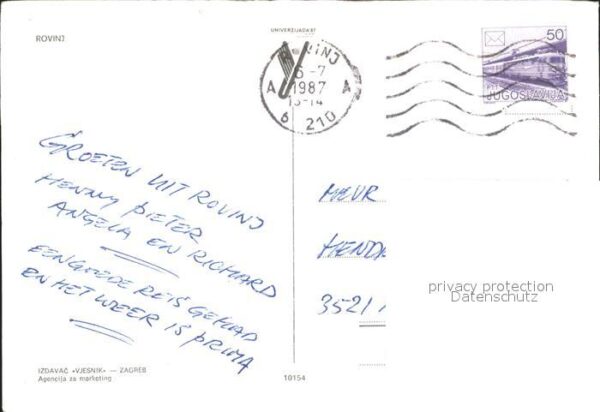 ROVINJ
UNIVERZIJADA 87
ROVINJ
6-7
1987
13-14
A A
6 210
50
JUGOSLAVIJA
GROETEN UIT ROVINJ
HENNY PIETER
ANGELA EN RICHARD
EEN GOEDE REIS GEHAD
EN HET WEER IS PRIMA
MEVR
HENDR
3521
privacy protection
Datenschutz
IZDAVAČ »VJESNIK« — ZAGREB
Agencija za marketing
10154